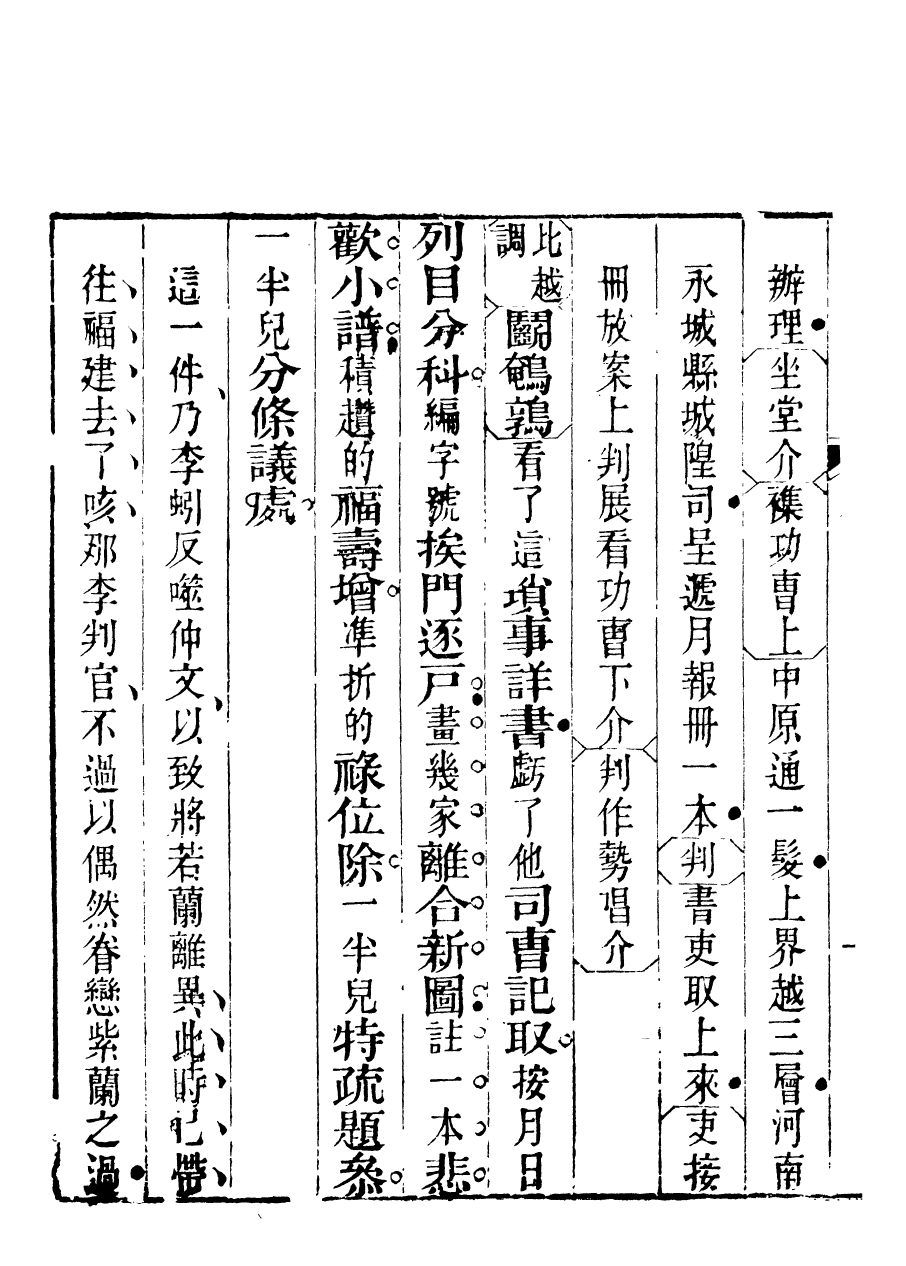 辦理坐堂介襍功曹上中原通一髮上界越三層河南
永城縣城隍司呈遞月報冊一本判書吏取上來吏接
冊放案上判展看功曹下介判作勢唱介
越調比鬭鵪鶉看了這瑣事詳書虧了他司曹記取按月日
列目分科編字號挨門逐戸畫幾家離合新圖註一本悲
歡小譜積趲的福壽增準折的祿位除一半兒特疏題叅
一半兒分條議處
這一件乃李蚓反噬仲文以致將若蘭離異此時已帶
往福建去了咳那李判官不過以偶然眷戀紫蘭之過